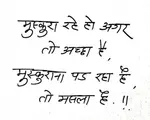 मुस्कुरा रहे हो अगर
तो अच्छा है,
मुस्कुराना पड रहा है,
तो मसला है .!!